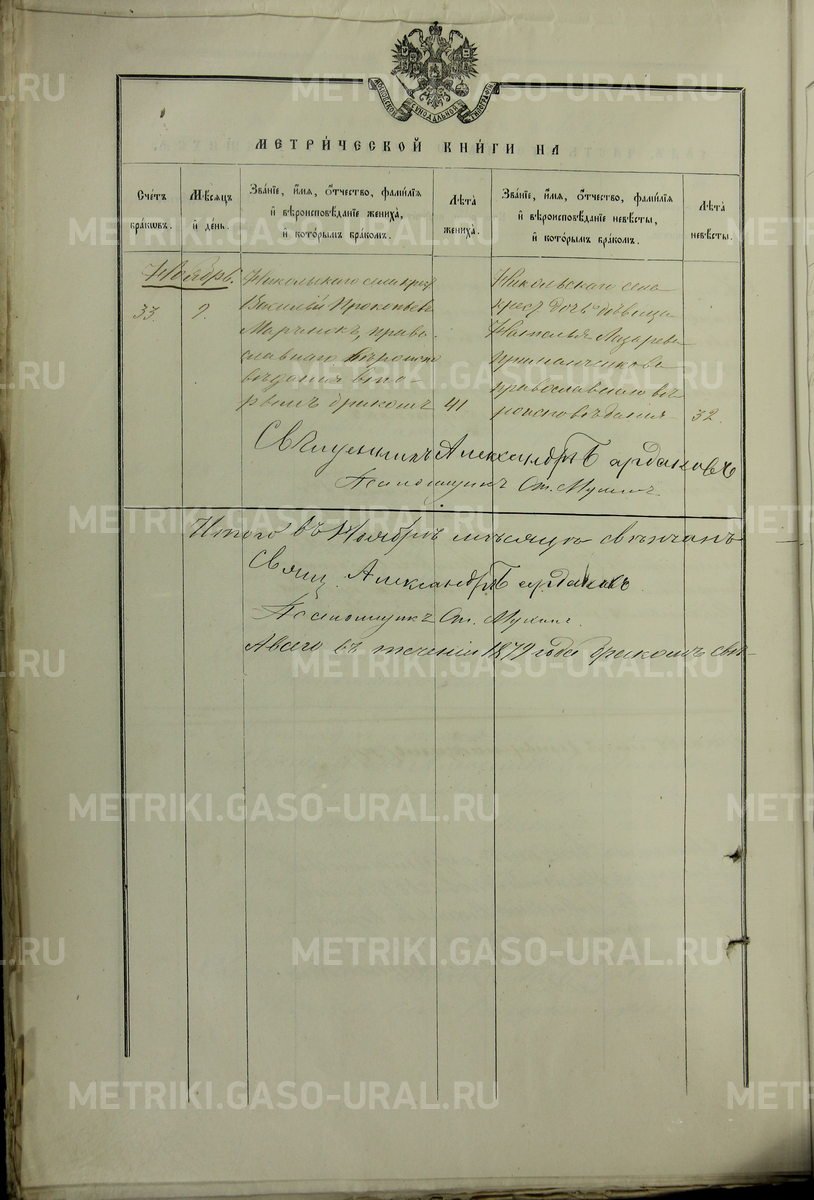 МОСКОВСКОЙ СУНОДАЛЬНОЙ ТИПОГРАФІИ
МЕТРИ́ЧЕСКОЙ КНИ́ГИ НА
Сче́тъ бра́ковъ.
Мѣ́сяцъ и де́нь.
Зва́нїе, и́мя, ѻ҆́тчество, фами́лїя и вѣроисповѣ́данїе жениха̀, и кото́рымъ бра́комъ.
Лѣ́та жениха̀.
Зва́нїе, и́мя, ѻ҆́тчество, фами́лїя и вѣроисповѣ́данїе невѣ́сты, и кото́рымъ бра́комъ.
Лѣ́та невѣ́сты.
Ноябрь.
33.
Никольскаго села крест
Василій Прокопьевъ
право
славнаго вѣроиспо
вѣданія вто
рымъ бракомъ
41
Никольскаго села
крест дочь дѣвица
Наталья Лазарева
православнаго вѣ
роисповѣданія
32.
Священникъ Александръ Бардаковъ
Псаломщикъ Ст. Мухинъ
Итого въ Ноябрѣ мѣсяцѣ вѣнчанъ
Свящ. Александръ Бардаковъ
Псаломщикъ Ст. Мухинъ.
А всего въ теченіи 1879 года бракомъ
METRIKI.GASO-URAL.RU